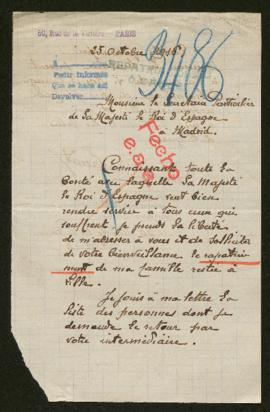 60, Rue de la Victoire PARIS
25 Octobre 1916
3486
A
Pedir informes
Que se hará así
Devolver
Monsieur le Secrétaire Particulier
de Sa Majesté le Roi d'Espagne
à Madrid.
Fecho
Connaissant toute la
bonté avec laquelle Sa Majesté
le Roi d'Espagne veut bien
rendre service à tous ceux qui
souffrent, je prends la liberté
de m'adresser à vous et de solliciter
de votre bienveillance le rapatrie-
ment de ma famille restée à
Lille.
Je joins à ma lettre la
liste des personnes dont je
demande le retour par
votre intermédiaire.